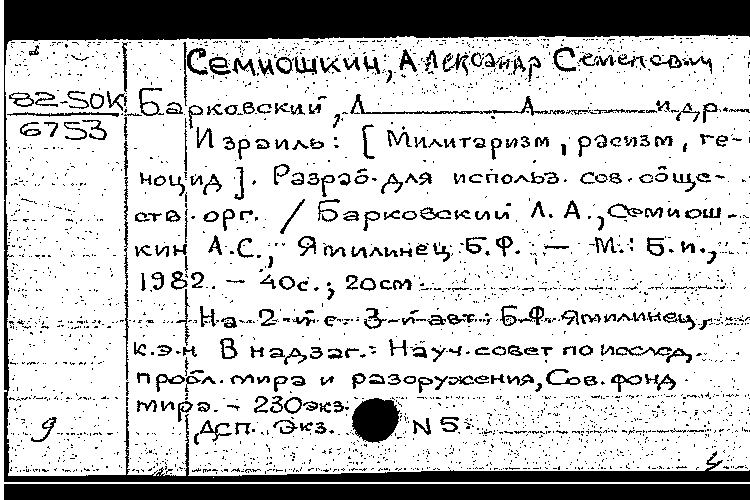 Семиошкин, Александр Семенович
82-50К Барковский, Л. А. и др.
6753
Израиль: [ Милитаризм, расизм, ге-
ноцид ]. Разраб. для использ. сов. обще-
ств. орг. / Барковский Л. А., Семиош-
кин А.С., Ямилинец Б.Ф. — М.: Б.и.,
1982. – 40с.; 20см
На 2-й с 3-й авт.: Б.Ф. Ямилинец,
к.э.н В надзаг.: Науч. совет по исслед.
пробл. мира и разоружения, Сов. фонд
мира. – 230экз.
9 Дсп. Экз. N 5